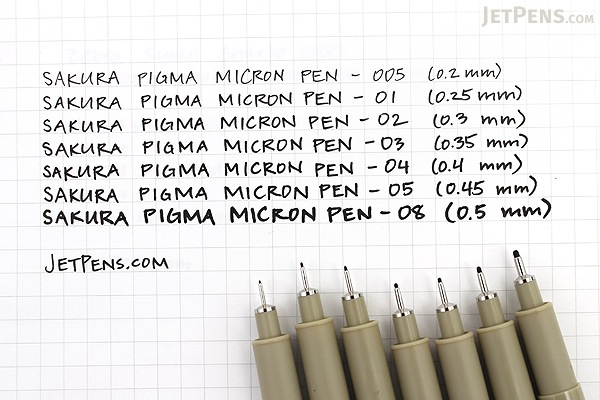 JETPENS.COM
SAKURA PIGMA MICRON PEN - 005 (0.2 mm)
SAKURA PIGMA MICRON PEN - 01 (0.25 mm)
SAKURA PIGMA MICRON PEN - 02 (0.3 mm)
SAKURA PIGMA MICRON PEN - 03 (0.35 mm)
SAKURA PIGMA MICRON PEN - 04 (0.4 mm)
SAKURA PIGMA MICRON PEN - 05 (0.45 mm)
SAKURA PIGMA MICRON PEN - 08 (0.5 mm)
JETPENS.COM